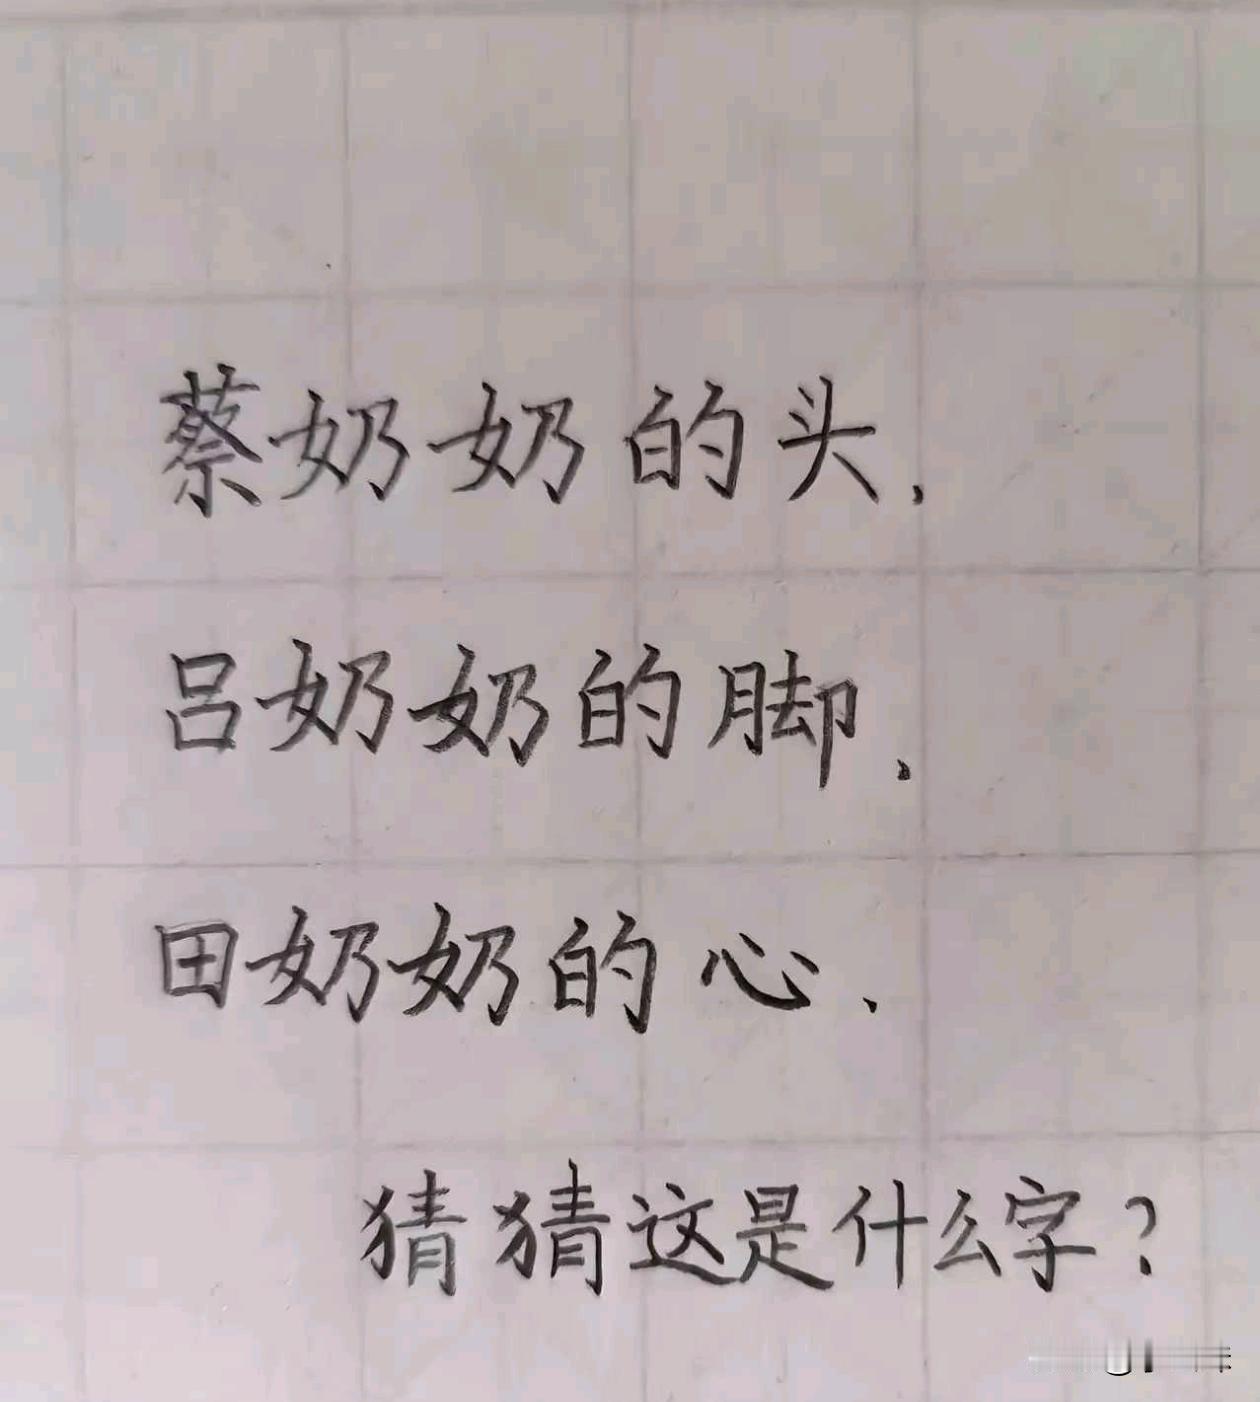 蔡奶奶的头，
吕奶奶的脚、
田奶奶的心、
猜猜这是什么字？